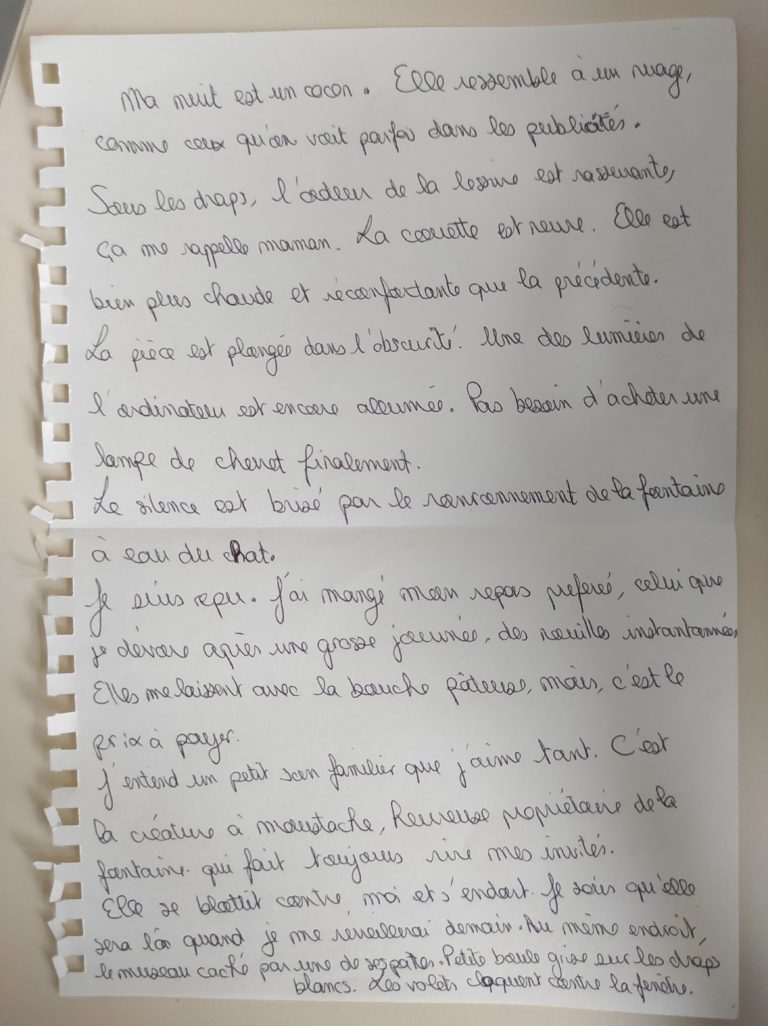 Ma nuit est un cocon. Elle ressemble à un nuage,
comme ceux qu'on voit parfoi dans les publicités.
Sous les draps, l'odeur de la lessive est rassurante,
ça me rappelle maman. La couette est neuve. Elle est
bien plus chaude et réconfortante que la précédente.
La pièce est plongée dans l'obscurité. Une des lumières de
l'ordinateur est encore allumée. Pas besoin d'acheter une
lampe de chevet finalement.
Le silence est brisé par le ronronnement de la fontaine
à eau du chat.
Je suis repu. J'ai mangé mon repas preferé, celui que
je dévore après une grosse journée, des nouilles instantannées
Elles me laissent avec la bouche pâteuse, mais, c'est le
prix à payer.
J'entend un petit son familier que j'aime tant. C'est
la créature à moustache, heureuse propiétaire de la
fontaine qui fait toujours rire mes invités.
Elle se blottit contre moi et s'endort. Je sais qu'elle
sera là quand je me réveilerai demain. Au même endroit,
le museau caché par une de ses pattes. Petite boule grise sur les draps
blancs. Les volets claquent contre la fenêtre.